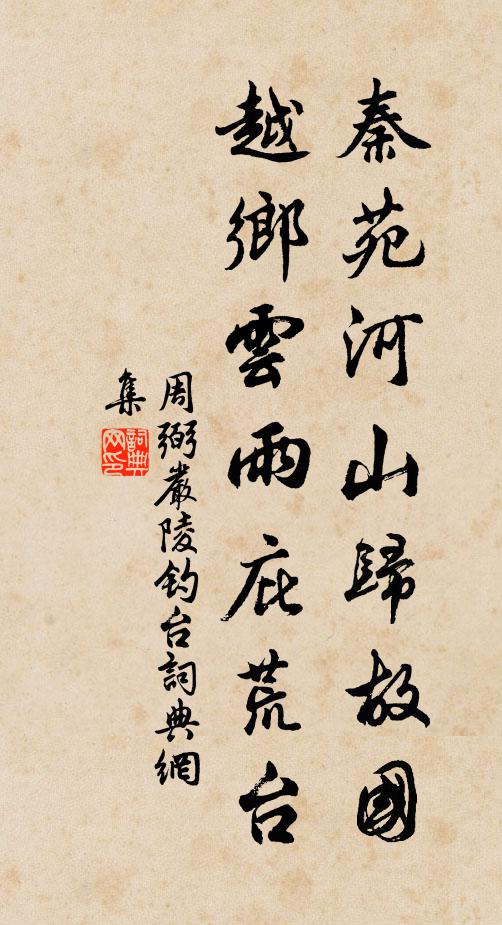 秦苑河山歸故國
越鄉雲雨庇荒台
周弼嚴陵釣台詞典網
集
詞典網印